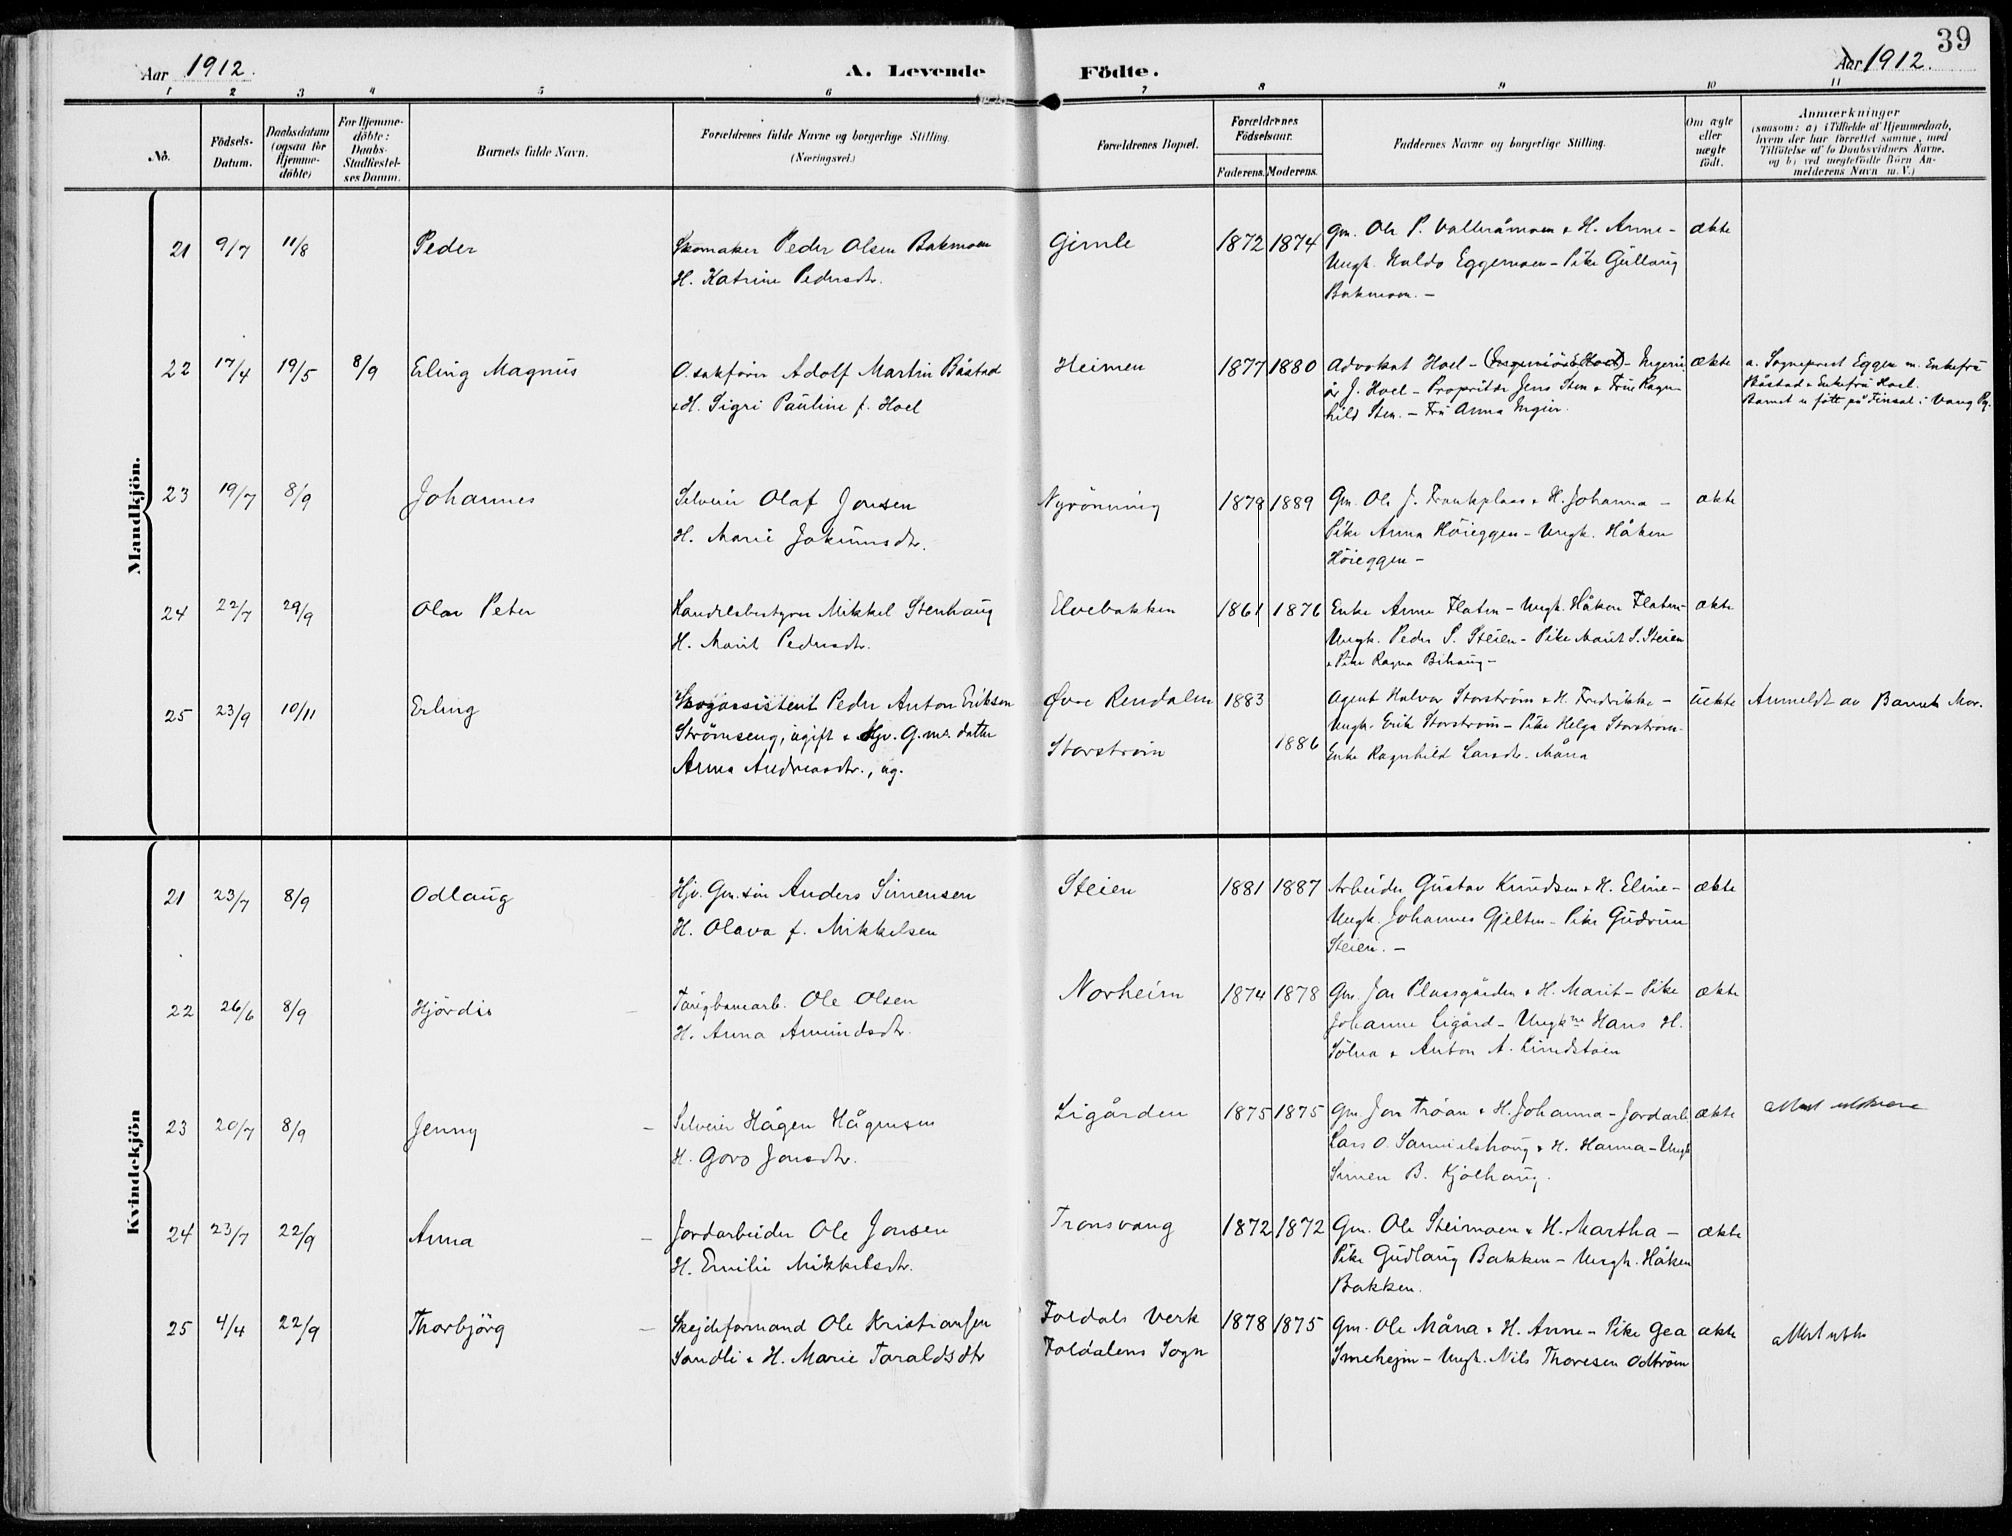 39
Aar 1912.
A. Levende
Födte.
Aar 1912.
1 2 3 4 5 6 7 8 9 10 11
No.
Födsels-
Datum.
Daabsdatum
(ogsaa for
Hjemme-
döbte)
For Hjemme-
döbte:
Daabs-
Stadfæstel-
ses Datum.
Barnets fulde Navn.
Forældrenes fulde Navne og borgerlige Stilling.
(Næringsvei.)
Forældrenes Bopæl.
Forældrenes
Födselsaar.
Faderens. Moderens.
Faddernes Navne og borgerlige Stilling.
Om ægte
eller
uægte
födt.
Anmærkninger
(saasom: a) i Tilfælde af Hjemmedaab,
hvem der har forrettet samme, med
Tilföielse af to Daabsvidners Navne,
og b) ved uægtefödte Börn An-
melderens Navn m. V.)
Mandkjön.
21 9/7 11/8 Peder
Skomaker Peder Olsen Bakmoen
H. Katrine Pedersdtr.
Gimle 1872 1874
Gm. Ole P. Vollråmoen & H. Anne -
Ungk. Haldo Eggemoen - Pike Gullaug
Bakmoen. -
ækte
22 17/4 19/5 8/9 Erling Magnus
O. sakförer Adolf Martin Båstad
& H. Sigri Pauline f. Hoel
Heimen 1877 1880
Advokat Hoel - (Ingeniör Hoel) - Ingeni-
ör J. Hoel - Propritær Jens Sten & Frue Ragn-
hild Sten. - Fru Anna Engier.
ækte
a. Sogneprest Eggen m. Enkefru
Båstad & Enkefru Hoel.
Barnet er födt på Finsal i Vang Pg.
23 19/7 8/9 Johannes
Selveier Olaf Jonsen
H. Marie Jokumsdtr.
Nyröning 1879 1889
Gm. Ole J. Tronkplass & H. Johanna -
Pike Anna Höieggen - Ungk. Håken
Höieggen -
ækte
24 22/7 29/9 Olav Peter
Handelsbestyrer Mikkel Stenhaug
H. Marit Pedersdtr.
Elvebakken 1861 1876
Enke Anne Flaten - Ungk. Håken Flaten -
Ungk. Peder S. Steien - Pike Marit S. Steien
& Pike Ragna Bihaug -
ækte
25 23/9 10/11 Erling
Skogassistent Peder Anton Eriksen
Strömseng, ugift & Hjv. G.m.s datter
Anna Andreasdtr., ug.
Øvre Rendalen 1883
Storström 1886
Agent Halvor Storström & H. Fredrikke -
Ungk. Erik Storström - Pike Helga Storström -
Enke Ragnhild Larsdtr. Måna
uekte
Anmeldt av Barnets Mor.
Kvindekjön
21 23/7 8/9 Odlaug
Hjv. Gm. sön Anders Simensen
H. Olava f. Mikkelsen
Steien 1881 1887
Arbeider Gustav Knudsen & H. Eline -
Ungk. Johannes Gjelten - Pike Gudrun
Steien. -
ækte
22 26/6 8/9 Hjördis
Taugbanearb. Ole Olsen
H. Anna Amundsdtr.
Norheim 1874 1878
Gm. Jon Plassgården & H. Marit - Pike
Johanne Ligård - Ungkne Hans H.
Sölna & Anton A. Lundstöen
ækte
23 20/7 8/9 Jenny
Selveier Hågen Hågensen
H. Goro Jonsdtr.
Ligården 1875 1875
Gm. Jon Tröan & H. Johanna - Jordarb.
Lars O. Samuelshaug & H. Hanna - Ungk
Simen B. Kjölhaug.
ækte
24 23/7 22/9 Anna
Jordarbeider Ole Jonsen
H. Emilie Mikkelsdtr.
Tronsvang 1872 1872
Gm. Ole Steimoen & H. Martha -
Pike Gudlaug Bakken - Ungk. Håken
Bakken.
ækte
25 4/4 22/9 Thorbjörg
Skejdeformand Ole Kristiansen
Sandli & H. Marie Taraldsdtr
Foldals Verk
Foldalens Sogn
1878 1875
Gm. Ole Måna & H. Anne - Pike Gea
Smehejm - Ungk. Nils Thoresen Odtröen
ækte